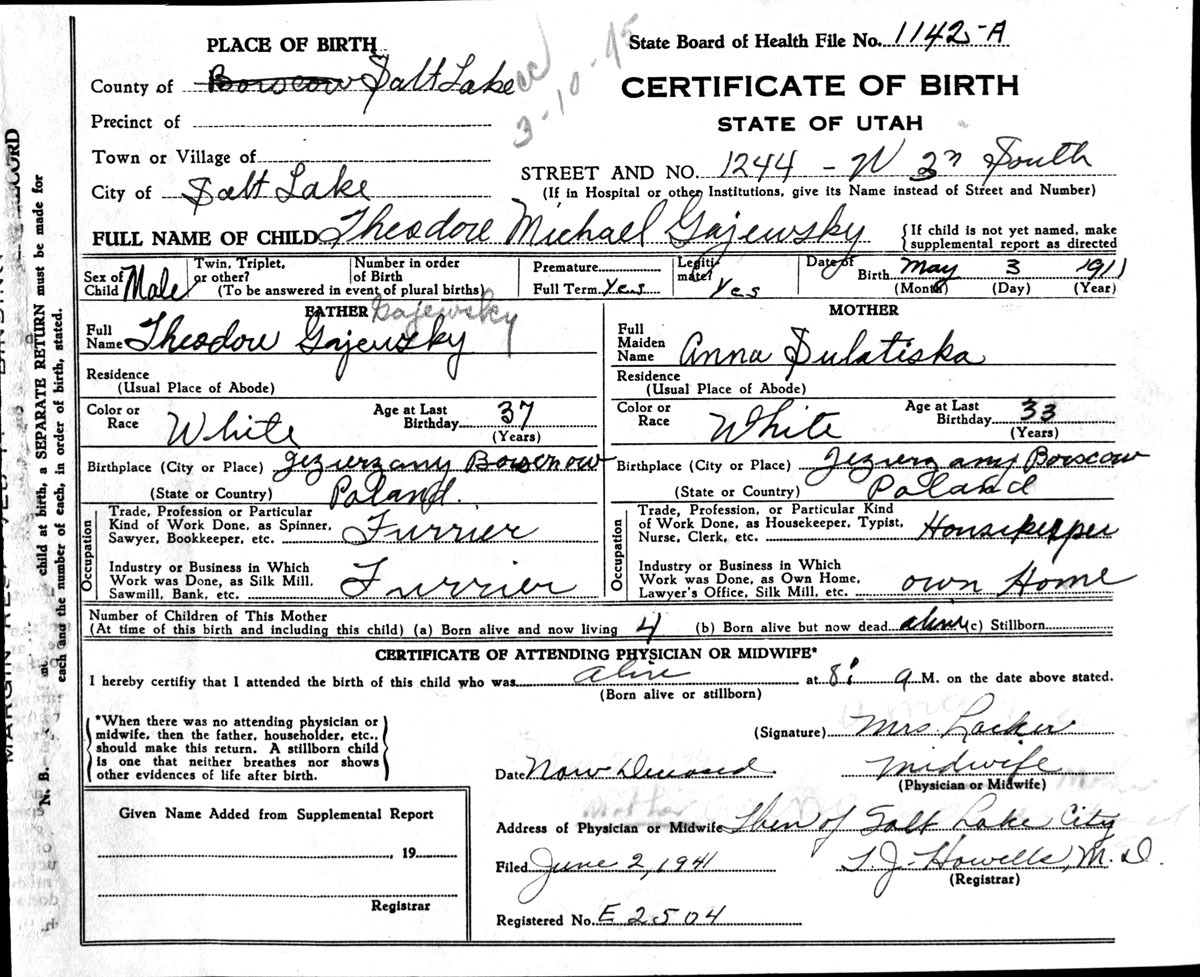 PLACE OF BIRTH
State Board of Health File No. 1142-A
County of Borscow Salt Lake
3-10-45
CERTIFICATE OF BIRTH
Precinct of
STATE OF UTAH
Town or Village of
STREET AND NO. 1244 - W 3rd South
City of Salt Lake
(If in Hospital or other Institutions, give its Name instead of Street and Number)
FULL NAME OF CHILD Theodore Michael Gajewsky
{If child is not yet named, make
supplemental report as directed
Sex of Child Male
Twin, Triplet, or other?
Number in order of Birth
(To be answered in event of plural births)
Premature
Full Term Yes
Legiti- mate? Yes
Date of Birth May 3 1911
(Month) (Day) (Year)
FATHER Gajewsky
Full Name Theodore Gajewsky
Residence
(Usual Place of Abode)
Color or Race White
Age at Last Birthday 37
(Years)
Birthplace (City or Place) Jezierzany Borschow
(State or Country) Poland.
Occupation
Trade, Profession or Particular
Kind of Work Done, as Spinner,
Sawyer, Bookkeeper, etc. Furrier
Industry or Business in Which
Work was Done, as Silk Mill,
Sawmill, Bank, etc. Furrier
MOTHER
Full Maiden Name Anna Sulatiska
Residence
(Usual Place of Abode)
Color or Race White
Age at Last Birthday 33
(Years)
Birthplace (City or Place) Jezierzany Borscow
(State or Country) Poland
Occupation
Trade, Profession, or Particular Kind
of Work Done, as Housekeeper, Typist,
Nurse, Clerk, etc. Housekeeper
Industry or Business in Which
Work was Done, as Own Home,
Lawyer's Office, Silk Mill, etc. own Home
Number of Children of This Mother
(At time of this birth and including this child) (a) Born alive and now living 4 (b) Born alive but now dead alive (c) Stillborn
CERTIFICATE OF ATTENDING PHYSICIAN OR MIDWIFE*
I hereby certifiy that I attended the birth of this child who was alive at 8: a M. on the date above stated.
(Born alive or stillborn)
*When there was no attending physician or
midwife, then the father, householder, etc.,
should make this return. A stillborn child
is one that neither breathes nor shows
other evidences of life after birth.
(Signature) Mrs. Lacker
Date Now Deceased
Midwife
(Physician or Midwife)
Given Name Added from Supplemental Report
, 19
Registrar
Address of Physician or Midwife Then of Salt Lake City
Filed June 2, 1941
T. J. Howells, M.D.
(Registrar)
Registered No. E 2504
N. B.
child at birth, a SEPARATE RETURN must be made for
each and the number of each, in order of birth, stated.